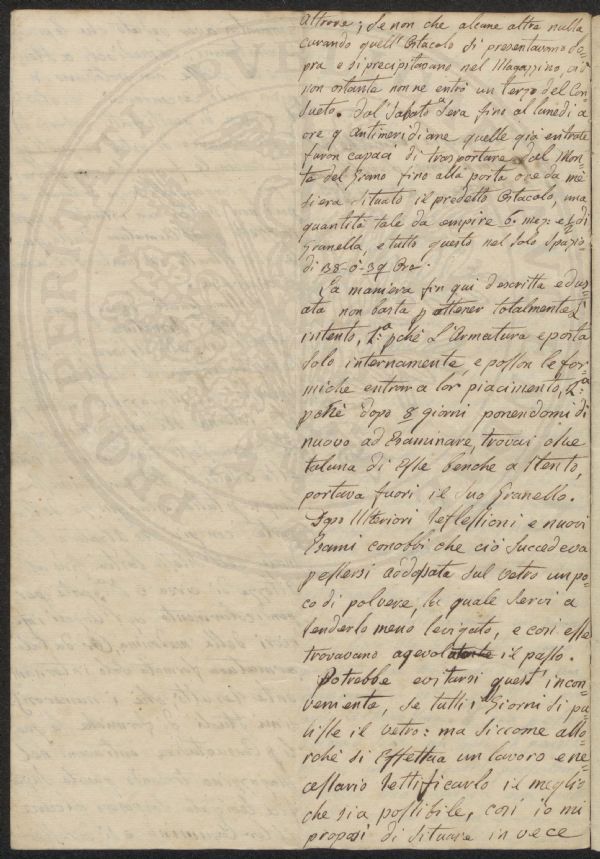 altrove; se non che alcune altre nulla
curando quell'Ostacolo si presentavano so=
pra e si precipitavano nel Magazzino, ciò
non ostante non ne entrò un terzo del Con=
sueto. Dal Sabato Sera fino al lunedì a
ore 9 Antimeridiane quelle già entrate
furon capaci di trasportare dal Mon=
te del Grano fino alla porta ove da me
si era situato il predetto Ostacolo, una
quantità tale da empire 6. mez: e ½ di
Granella, e tutto questo nel solo Spazio
di 38 o 39 Ore.
La maniera fin qui descritta ed us=
ata non basta p ottener totalmente L'
intento, 1.ª pchè L'Armatura è posta
solo internamente, e posson le for=
miche entrar a lor piacimento, 2.ª
pchè dopo 8 giorni ponendomi di
nuovo ad Esaminare, trovai che
taluna di Esse benche a Stento,
portava fuori il Suo Granello.
Dopo Ulteriori reflessioni e nuovi
Esami conobbi che ciò Succedeva
pessersi addossata sul vetro un po=
co di polvere, la quale Servì a
renderlo meno levigato, e così esse
trovavano agevol il passo.
Potrebbe evitarsi quest'incon=
veniente, se tutti i Giorni si pu=
lisse il vetro: ma siccome allo=
rchè si Effettua un lavoro è ne=
cessario rettificarlo il meglio
che sia possibile, così io mi
proposi di situare in vece